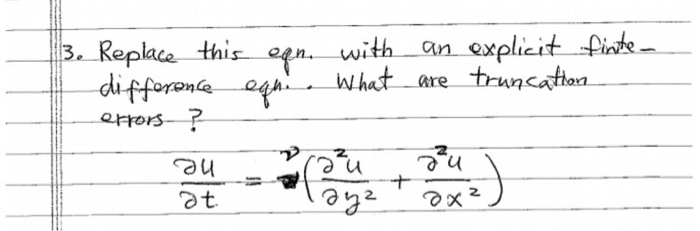 3. Replace this eqn. with an explicit finte-
difference eqn. . What are truncation
errors ?
∂u/∂t = ν(∂²u/∂y² + ∂²u/∂x²)